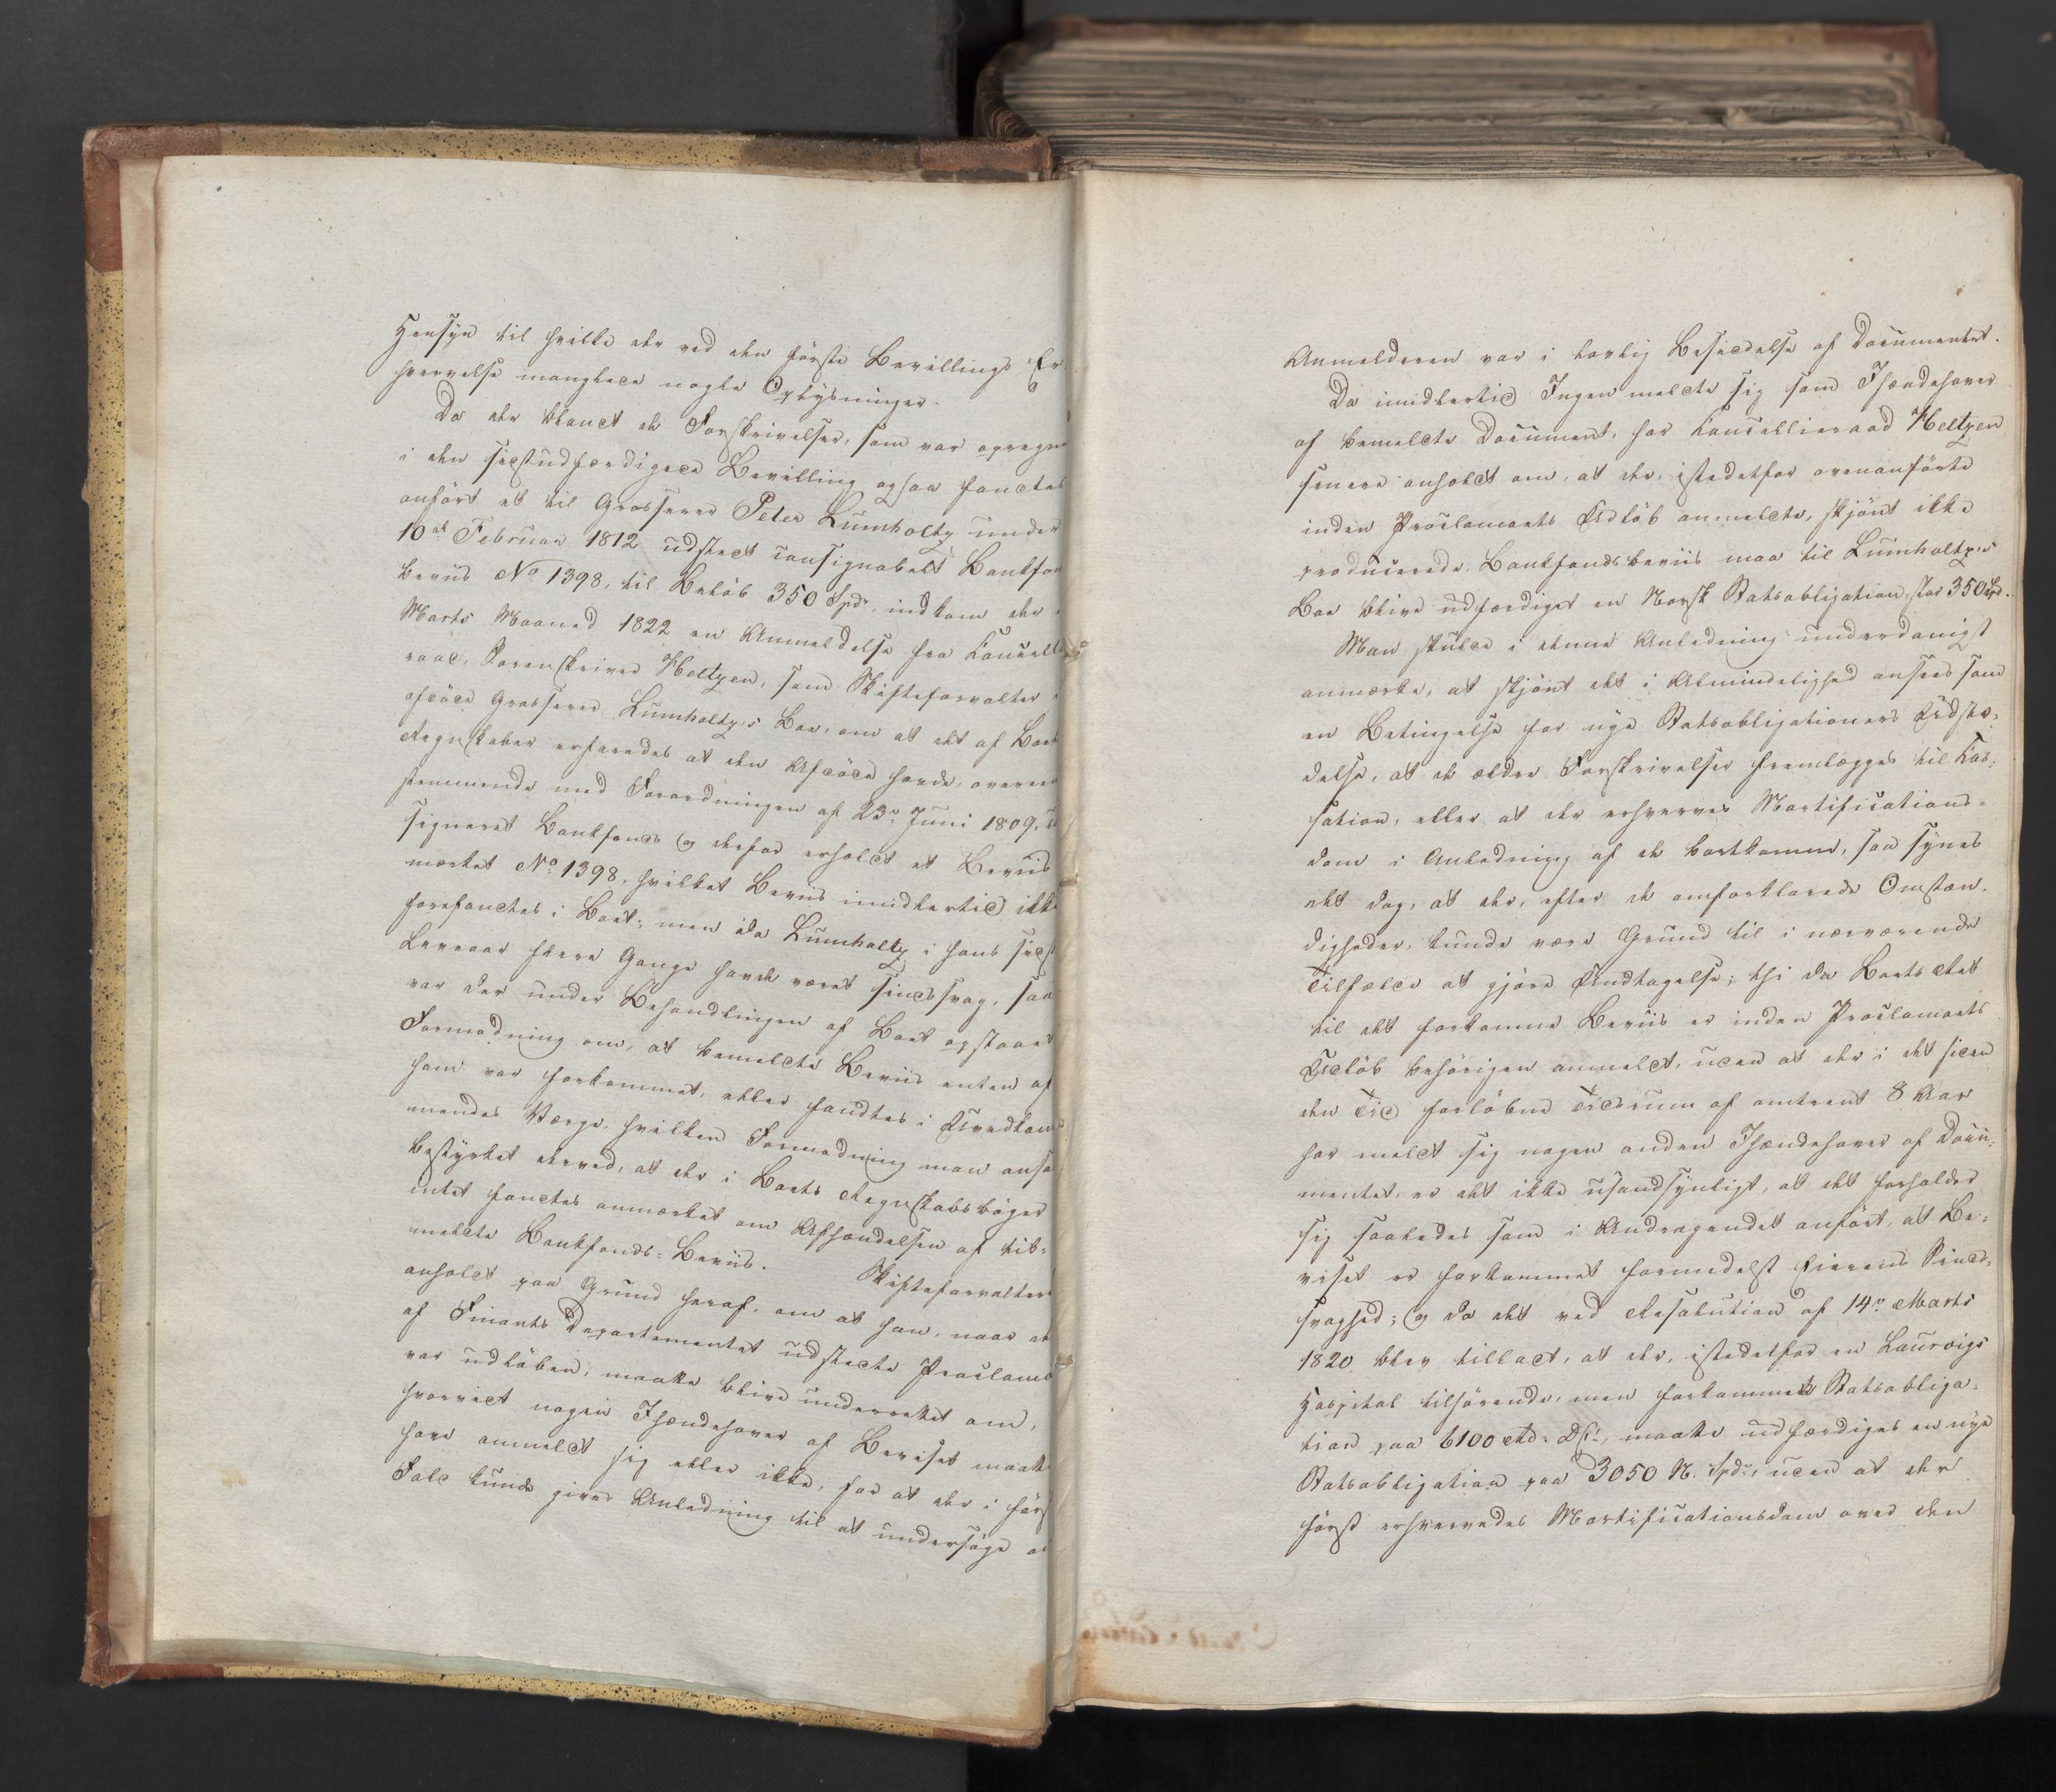 Hensyn til hvilke der ved den første Bevillings Er
hvervelse manglede nogle Oplysninger.
Da der blandt de Forskrivelser, som var opregne
i den sidstudfærdigede Bevilling ogsaa fandtes
anført et til Grosserer Peter Lumholtz under
10de Februar 1812 udstedt consignabelt Bankfon
beviis No 1398, til Beløb 350 Spdr, indkom der
Marts Maaned 1822 en Anmeldelse fra Cancelli
raad, Sorenskriver Heltzen, som Skifteforvalter
afdøde Grosserer Lumholtz's Boe, om at det af Boets
Regnskaber erfaredes at den Afdøde havde, overeen
stemmende med Forordningen af 23de Juni 1809,
signeret Bankfonds og derfor erholdt et Beviis
mærket No 1398, hvilket Beviis imidlertid ikke
forefandtes i Boet; men da Lumholtz i hans sidst
Leveaar flere Gange havde været sindssvag, saa
var der under Behandlingen af Boet opstaaet
Formodning om, at bemeldte Beviis enten af
ham var forkommet, eller fandtes i Uvedkom
mendes Værge, hvilken Formodning man ansa
bestyrket derved, at der i Boets Regnskabsbøger
intet fandtes anmærket om Afhændelsen af bes
meldte Bankfonds-Beviis. Skifteforvalteren
anholdt paa Grund heraf, om at han, naar det
af Finants Departementet udstedte Proclama
var udløben, maatte blive underrettet om,
hvorvidt nogen Ihændehaver af Beviset maatte
have anmeldt sig eller ikke, for at der i først
Fald kunde gives Anledning til at undersøge
Anmelderen var i lovlig Besiddelse af Documentet.
Da imidlertid Ingen meldte sig som Ihændehaver
af bemeldte Document, har Cancellieraad Heltzen
senere anholdt om, at der, istedetfor ovenanførte
inden Proclamaets Udløb anmeldte, skjønt ikke
producerede Bankfondsbeviis maa til Lumholtz's
Boe blive udfærdiget en Norsk Statsobligation, stor 350 Spd.
Man skulde i denne Anledning underdanigst
anmærke, at skjønt det i Almindelighed ansees som
en Betingelse for nye Statsobligationers Udste-
delse, at de ældre Forskrivelser fremlægges til Cas-
sation, eller at der erhverves Mortifications-
dom i Anledning af de bortkomne, saa synes
det dog, at der, efter de omforklarede Omstæn-
digheder, kunde være Grund til i nærværende
Tilfælde at gjøre Undtagelse; thi da Boets Ret
til det forkomne Beviis er inden Proclamaets
Udløb behørigen anmeldt, uden at der i det siden
den Tid forløbne Tidsrum af omtrent 8 Aar
har meldt sig nogen anden Ihændehaver af Docu-
mentet, er det ikke usandsynligt, at det forholder
sig saaledes som i Andragendet anført, at Be-
viset er forkommet formedelst Eierens Sinds-
svaghed; og da det ved Resolution af 14de Marts
1820 blev tilladt, at der, istedetfor en Laurvigs
Hospital tilhørende, men forkommet Statsobliga-
tion paa 6100 Rd. DCt, maatte udfærdiges en nye
Statsobligation paa 3050 N. Spdr, uden at der
først erhvervedes Mortificationsdom over den